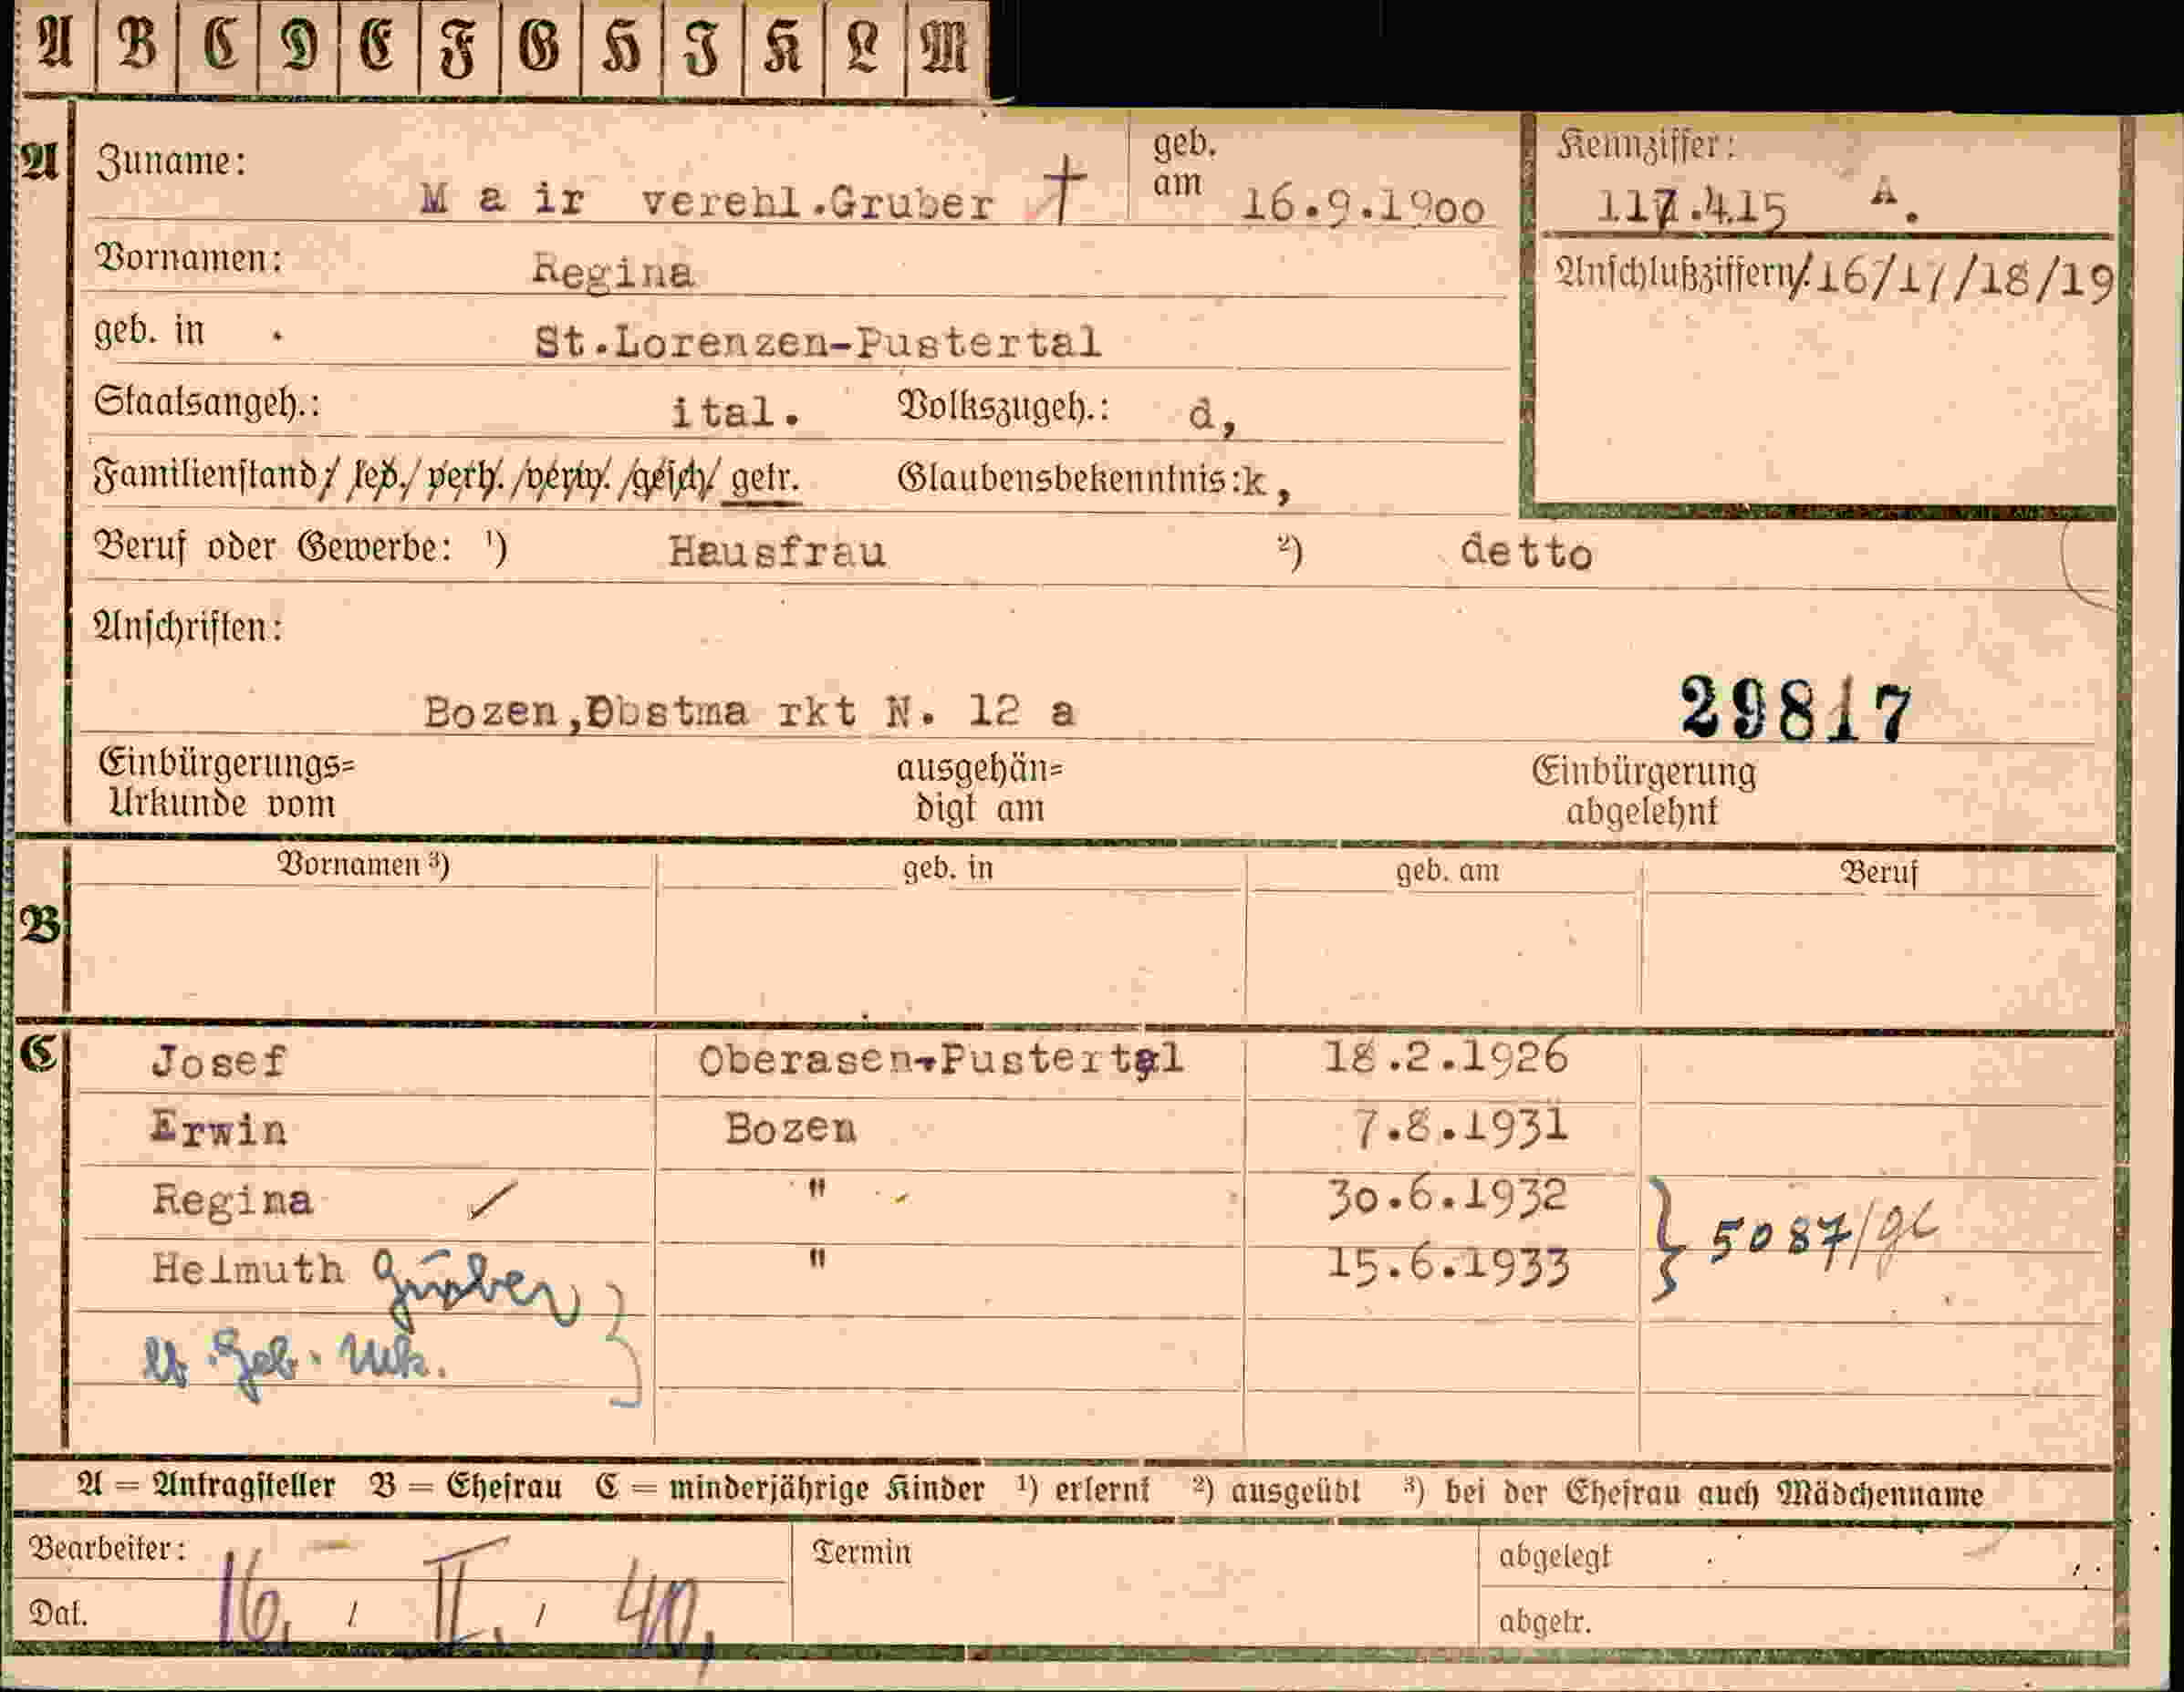 A B C D E F G H I K L M
A Zuname: M a ir verehl.Gruber † geb. am 16.9.1900 Kennziffer: 117.415 A.
Vornamen: Regina Anschlußziffern/.16/17/18/19
geb. in . St.Lorenzen-Pustertal
Staatsangeh.: ital. Volkszugeh.: d,
Familienstand:/ led./ verh./verw./gesch/ getr. Glaubensbekenntnis:k,
Beruf oder Gewerbe: ¹) Hausfrau ²) detto
Anschriften:
Bozen,Obstma rkt N. 12 a 29817
Einbürgerungs= ausgehän= Einbürgerung
Urkunde vom digt am abgelehnt
Vornamen ³) geb. in geb. am Beruf
B
C Josef Oberasen-Pustertal 18.2.1926
Erwin Bozen 7.8.1931
Regina ✓ " 30.6.1932
Helmuth Gruber " 15.6.1933 } 5087/
Geb. Urk.
A = Antragsteller B = Ehefrau C = minderjährige Kinder ¹) erlernt ²) ausgeübt ³) bei der Ehefrau auch Mädchenname
Bearbeiter: Termin abgelegt
Dat. 16. / II. / 40. abgetr.